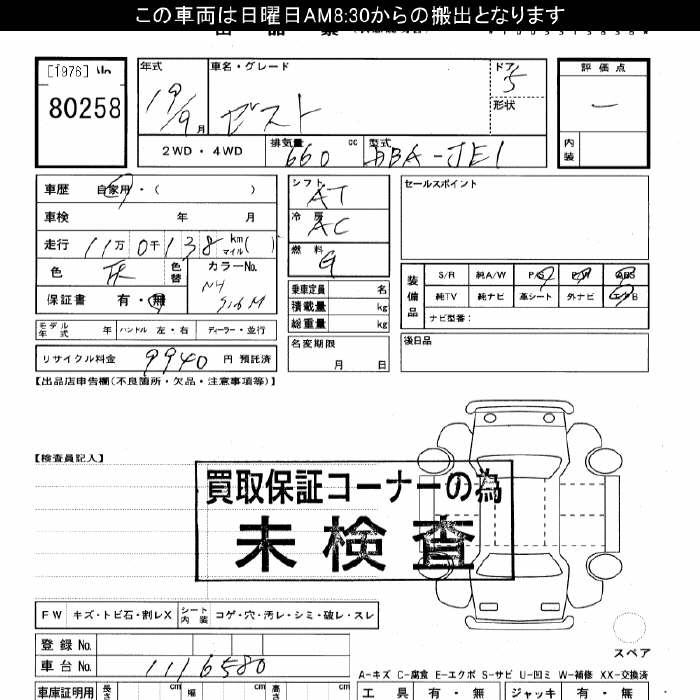 この車両は日曜日AM8:30からの搬出となります
[1976]
80258
年式
車名・グレード
ドア
評価点
19/9月
ゼスト
5
形状
2WD・4WD
排気量
660
cc
型式
DBA-JE1
内装
車歴 自家用・( )
シフト
AT
セールスポイント
車検 年 月
冷房
AC
走行 11万 0千 138 km マイル( )
燃料
G
色 灰
色替
カラーNo.
NH
516M
保証書 有・無
乗車定員 名
積載量 kg
総重量 kg
装備品
S/R 純A/W P/S P/W ABS
純TV 純ナビ 革シート 外ナビ エアB
ナビ型番:
モデル年式 年 ハンドル 左・右 ディーラー・並行
リサイクル料金 9940 円 預託済
名変期限
月 日
後日品
【出品店申告欄(不良箇所・欠品・注意事項等)】
【検査員記入】
買取保証コーナーの為
未検査
FW キズ・トビ石・割レX シート内装 コゲ・穴・汚レ・シミ・破レ・スレ
登録No.
車台No. 1116580
スペア
A-キズ C-腐食 E-エクボ S-サビ U-凹ミ W-補修 XX-交換済
車庫証明用 長さ cm 幅 cm 高さ cm
工具 有・無 ジャッキ 有・無